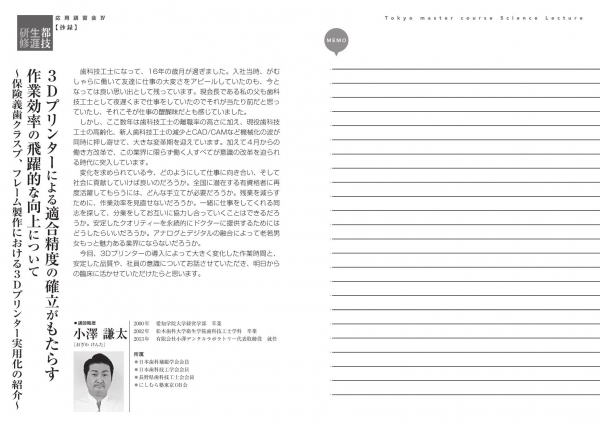 応用講習会Ⅳ
【抄録】
都技
生涯
研修
3Dプリンターによる適合精度の確立がもたらす
作業効率の飛躍的な向上について
～保険義歯クラスプ、フレーム製作における3Dプリンター実用化の紹介～
歯科技工士になって、16年の歳月が過ぎました。入社当時、がむ
しゃらに働いて友達に仕事の大変さをアピールしていたのも、今と
なっては良い思い出として残っています。現会長である私の父も歯科
技工士として夜遅くまで仕事をしていたのでそれが当たり前だと思っ
ていたし、それこそが仕事の醍醐味だとも感じていました。
しかし、ここ数年は歯科技工士の離職率の高さに加え、現役歯科技工
士の高齢化、新人歯科技工士の減少とCAD/CAMなど機械化の波が
同時に押し寄せて、大きな変革期を迎えています。加えて4月からの
働き方改革で、この業界に限らず働く人すべてが意識の改革を迫られ
る時代に突入しています。
変化を求められている今、どのようにして仕事に向き合い、そして
社会に貢献していけば良いのだろうか。全国に潜在する有資格者に再
度活躍してもらうには、どんな手立てが必要だろうか。残業を減らす
ために、作業効率を見直せないだろうか。一緒に仕事をしてくれる同
志を探して、分業をしてお互いに協力し合っていくことはできるだろ
うか。安定したクオリティーを永続的にドクターに提供するためには
どうしたらいいだろうか。アナログとデジタルの融合によって老若男
女もっと魅力ある業界にならないだろうか。
今回、3Dプリンターの導入によって大きく変化した作業時間と、
安定した品質や、社員の意識についてお話させていただき、明日から
の臨床に活かせていただけたらと思います。
●講師略歴
小澤 謙太
［おざわ けんた］
2000年 愛知学院大学経営学部 卒業
2002年 松本歯科大学衛生学院歯科技工士学科 卒業
2013年 有限会社小澤デンタルラボラトリー代表取締役 就任
所属
●日本歯科補綴学会会員
●日本歯科技工学会会員
●長野県歯科技工士会会員
●にしむら塾東京OB会
Tokyo master course Science Lecture
MEMO